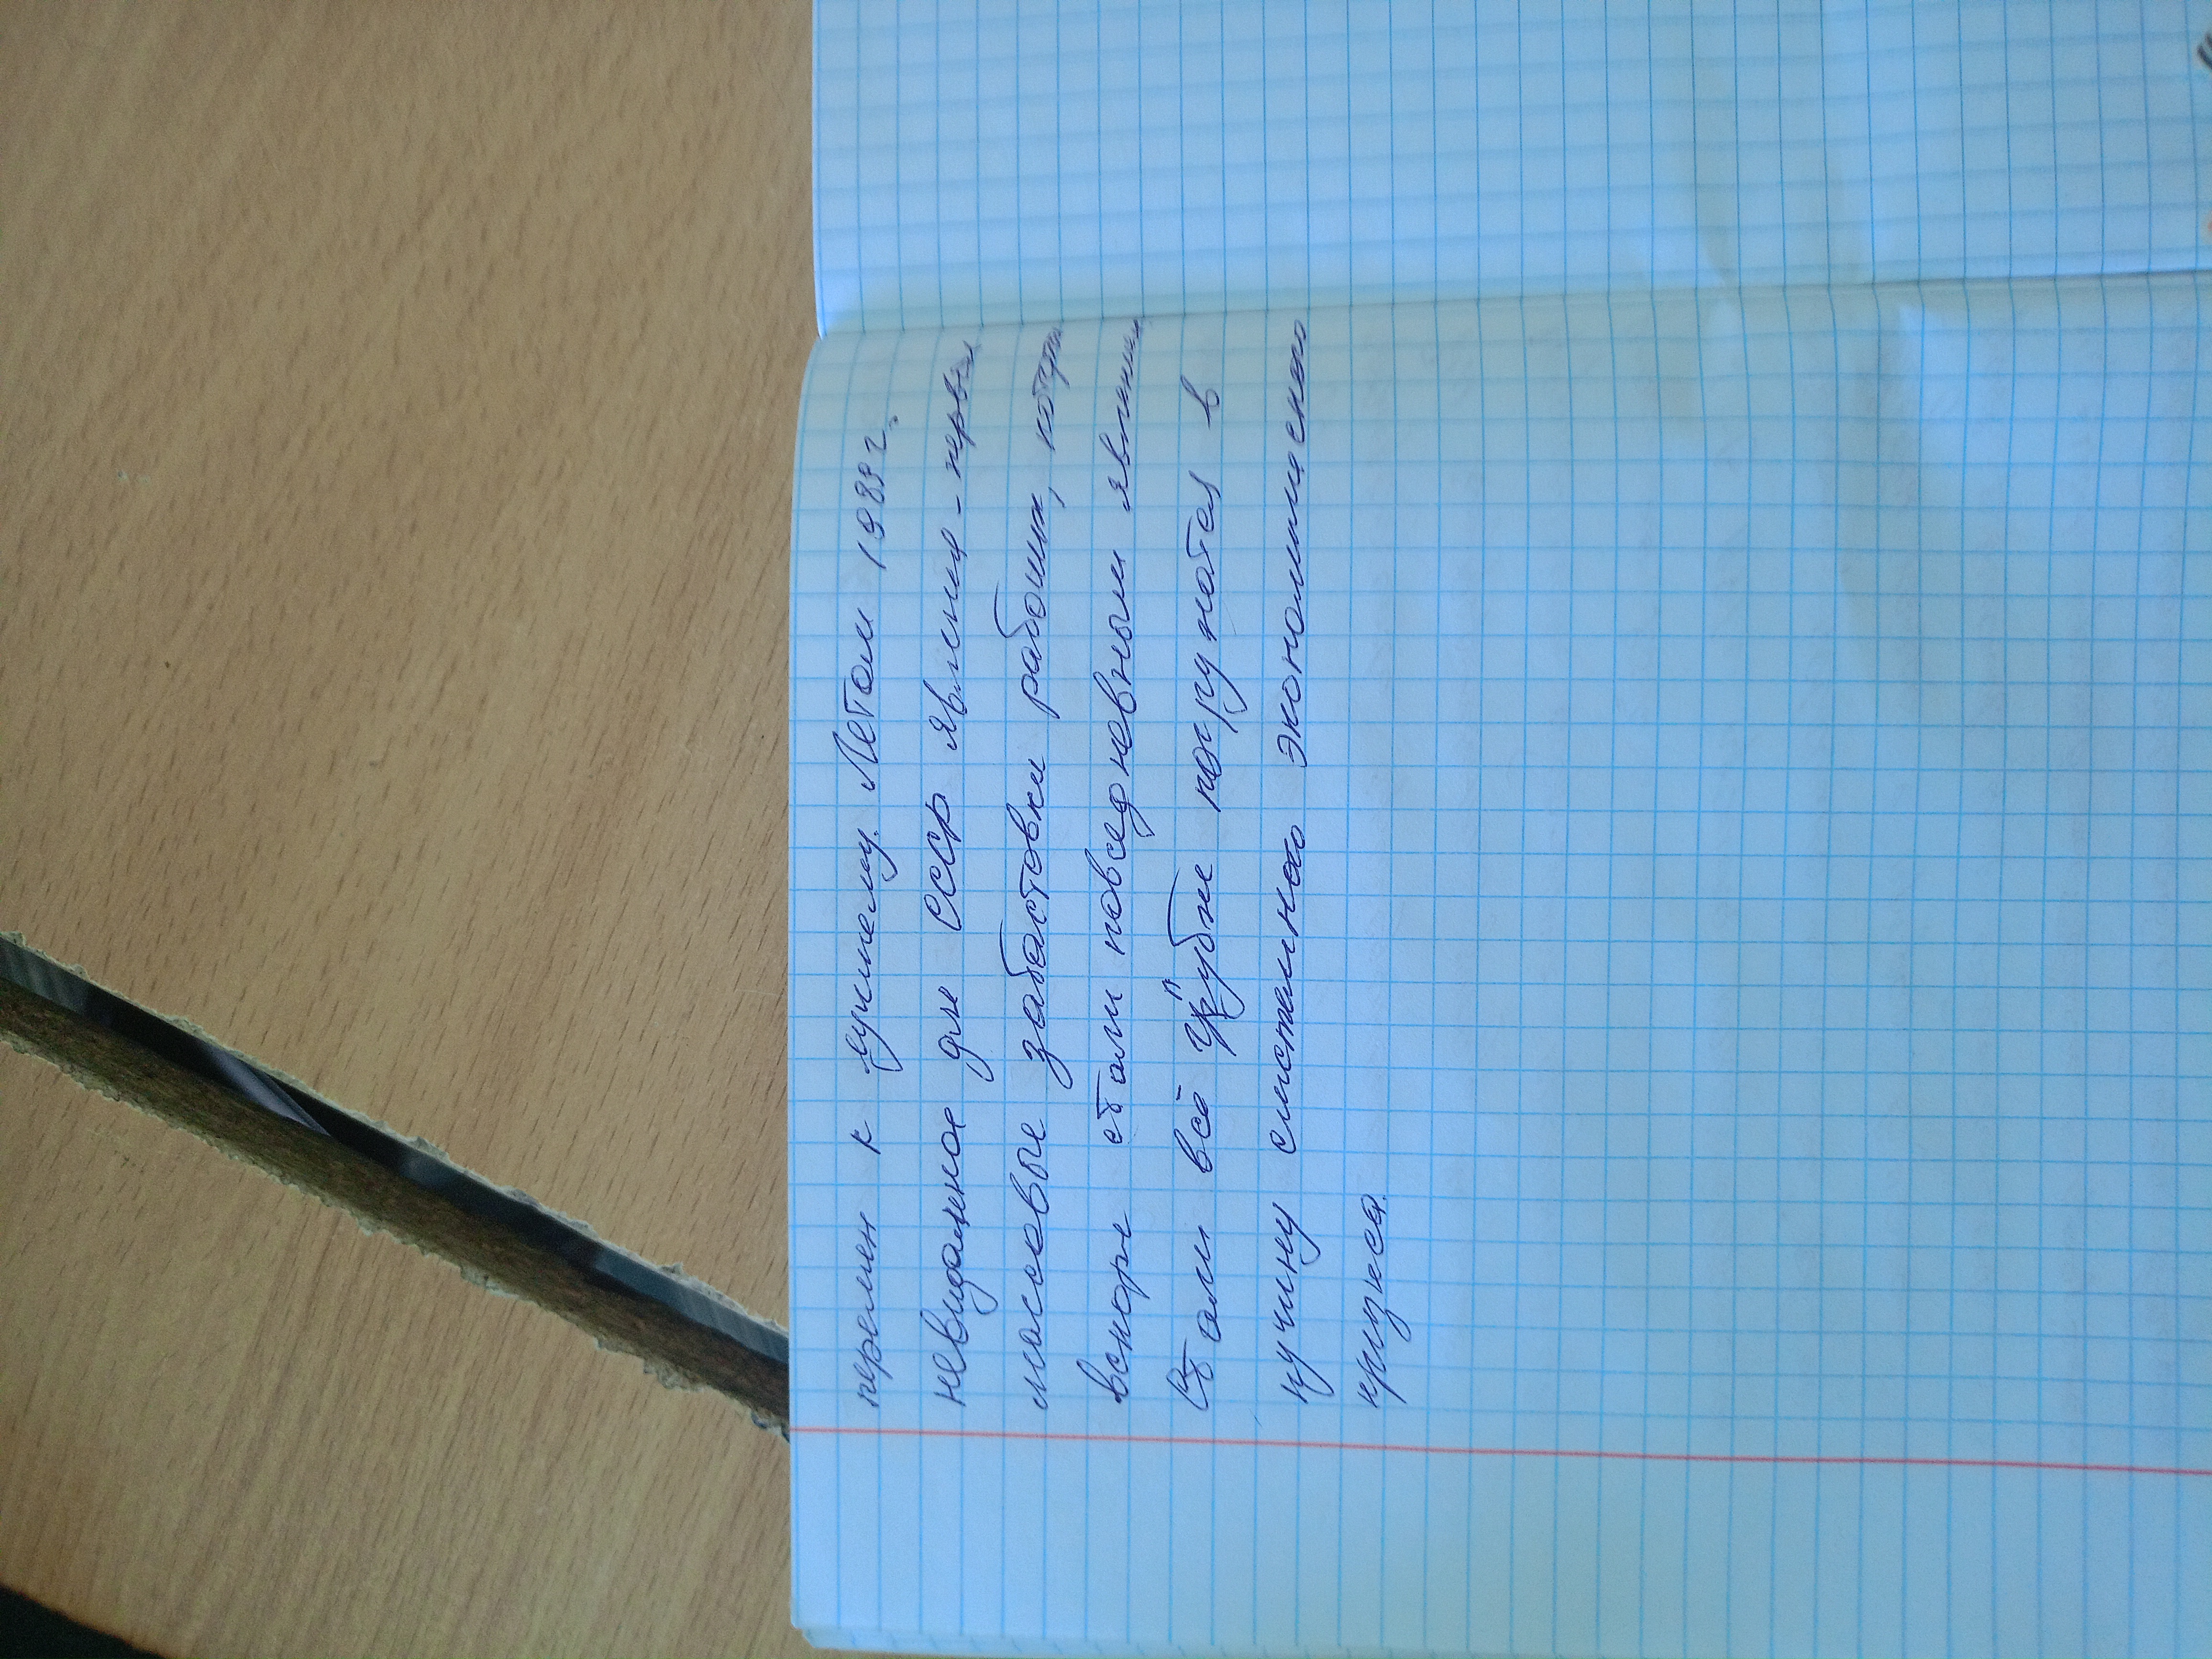 перемен к лучшему. Летом 1989 г.
невиданное для СССР явление - первые
массовые забастовки рабочих, которые
вскоре стали повседневным явлением
Стали всё глубже погружатся в
пучину системного экономическо
кризиса.